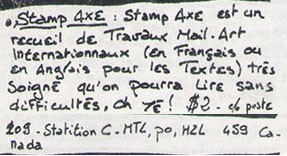 • Stamp Axe : Stamp Axe est un
recueil de Travaux Mail-Art
Internationnaux (en Français ou
en Anglais pour les Textes) très
Soigné qu'on pourra Lire sans
difficultés, oh YÉ ! $2 - c/o poste
209 - Statition C - MTL, po, H2L 4S9 Ca-
nada